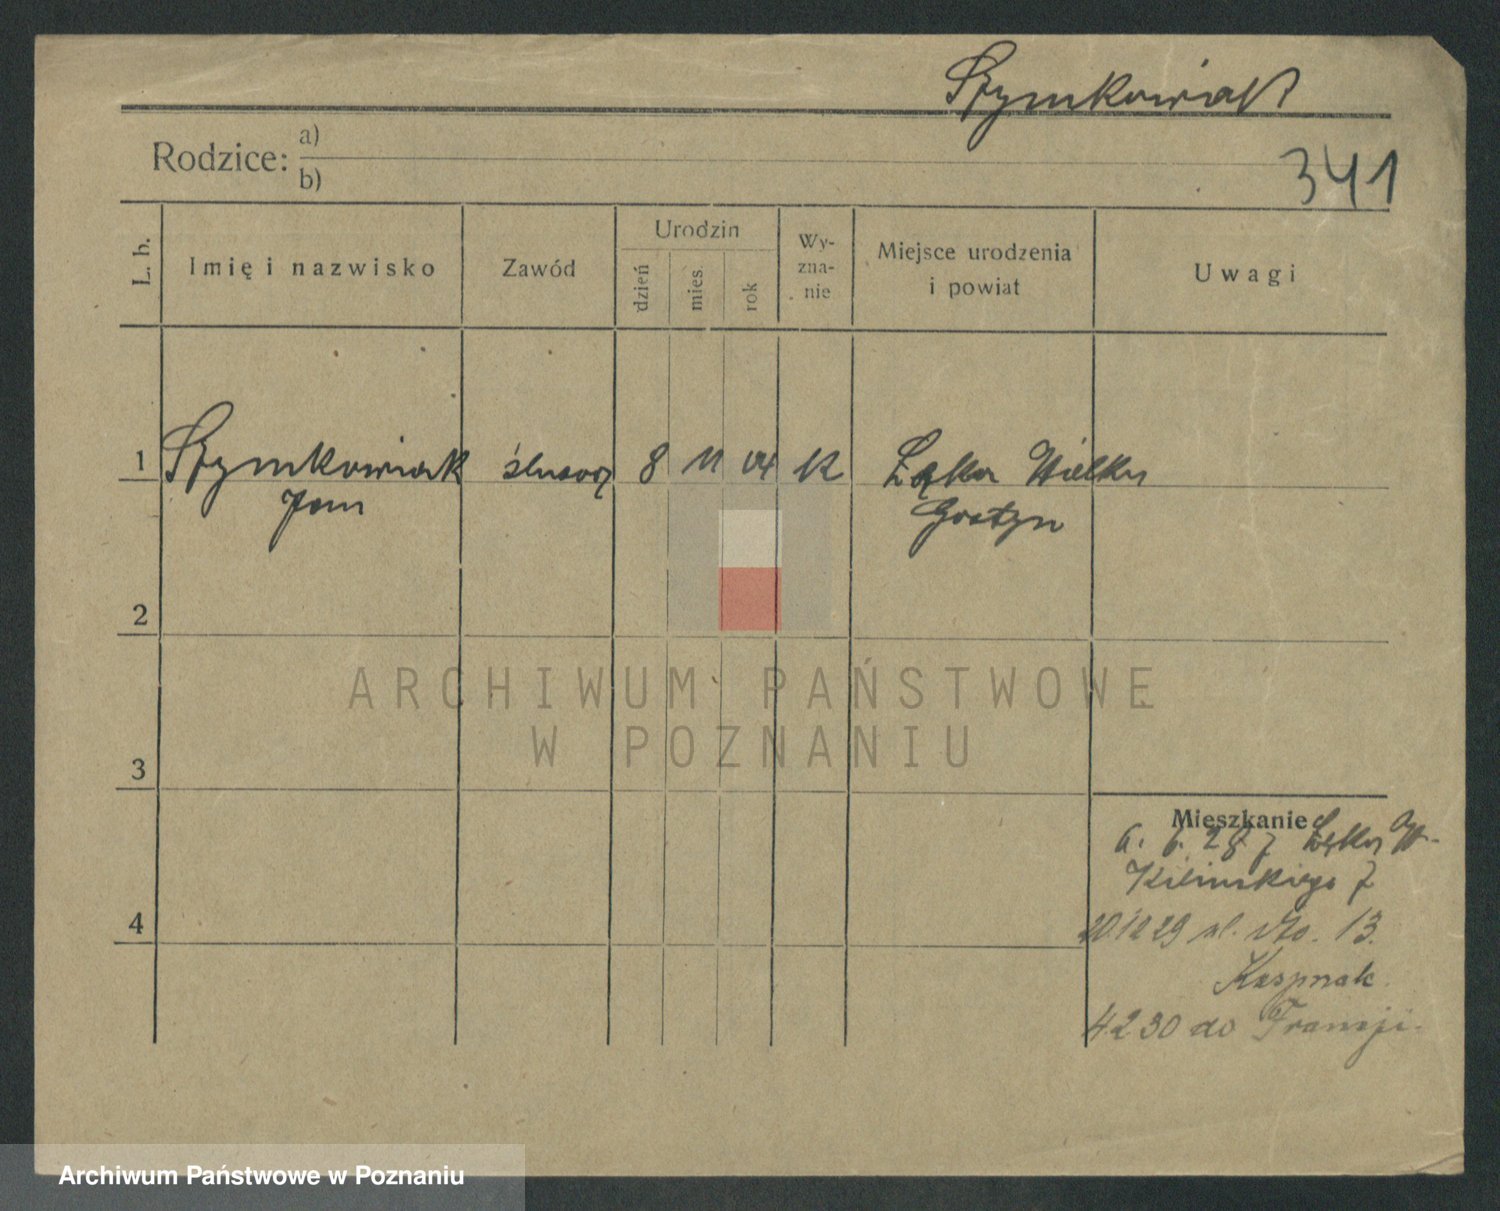 Szymkowiak
Rodzice: a)
b)
341
L. b.
Imię i nazwisko
Zawód
Urodzin
dzień
mies.
rok
Wy-
zna-
nie
Miejsce urodzenia
i powiat
Uwagi
1 Szymkowiak ślusarz 8 11 04 k Łęka Wielka
Jan Gostyn
2
ARCHIWUM PAŃSTWOWE
W POZNANIU
3
Mieszkanie
6. 6. 28 z Łęka W.
Kilińskiego 7
4
20.12 29 ul. 13.
Kaspnak
4.2.30 do Francji.
Archiwum Państwowe w Poznaniu